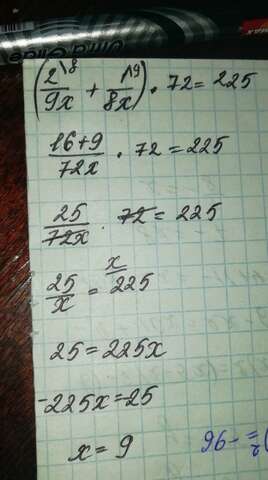 Uma Glide
(2\8/9x + 1\9/8x) · 72 = 225
16+9/72x · 72 = 225
25/72x · 72 = 225
25/x = x/225
25 = 225x
-225x = 25
x = 9